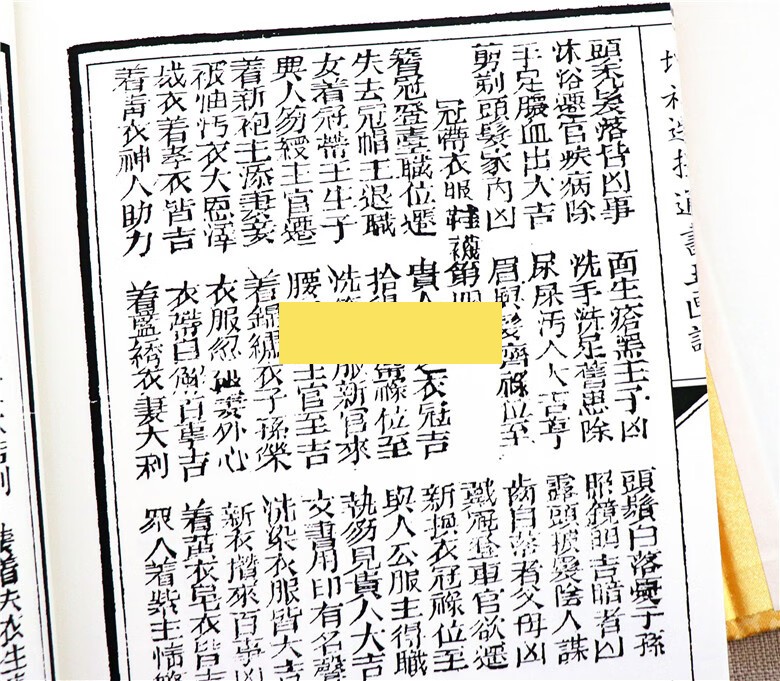 通書玉匣記
頭禿髮落皆凶事 面生瘡黑主子凶 頭鬚白落憂子孫
沐浴遷官疾病除 洗手洗足舊患除 照鏡明吉暗者凶
手足膿血出大吉 屎尿汚人大吉亨 露頭披髮陰人謀
剪剃頭髮家內凶 眉與髮齊祿位至 齒自落者父母凶
冠帶衣服鞋襪第四 戴冠登車官欲遷
簪冠登臺職位遷 貴人衣冠吉 新換衣冠祿位至
失去冠帽主退職 拾得祿位至 與人公服主得職
女着冠帶主生子 洗服新官來 執笏見貴人大吉
與人笏綬主官遷 腰主官至吉 文書用印有名聲
着新袍主添妻妾 着錦繡衣子孫榮 洗染衣服皆大吉
被油汚衣大恩澤 衣服忽破妻外心 新衣攢來百事凶
成衣着孝衣皆吉 衣帶自解百事吉 着黃衣皂衣皆吉
着靑衣神人助力 着藍綉衣妻大利 眾人着紫主情弊